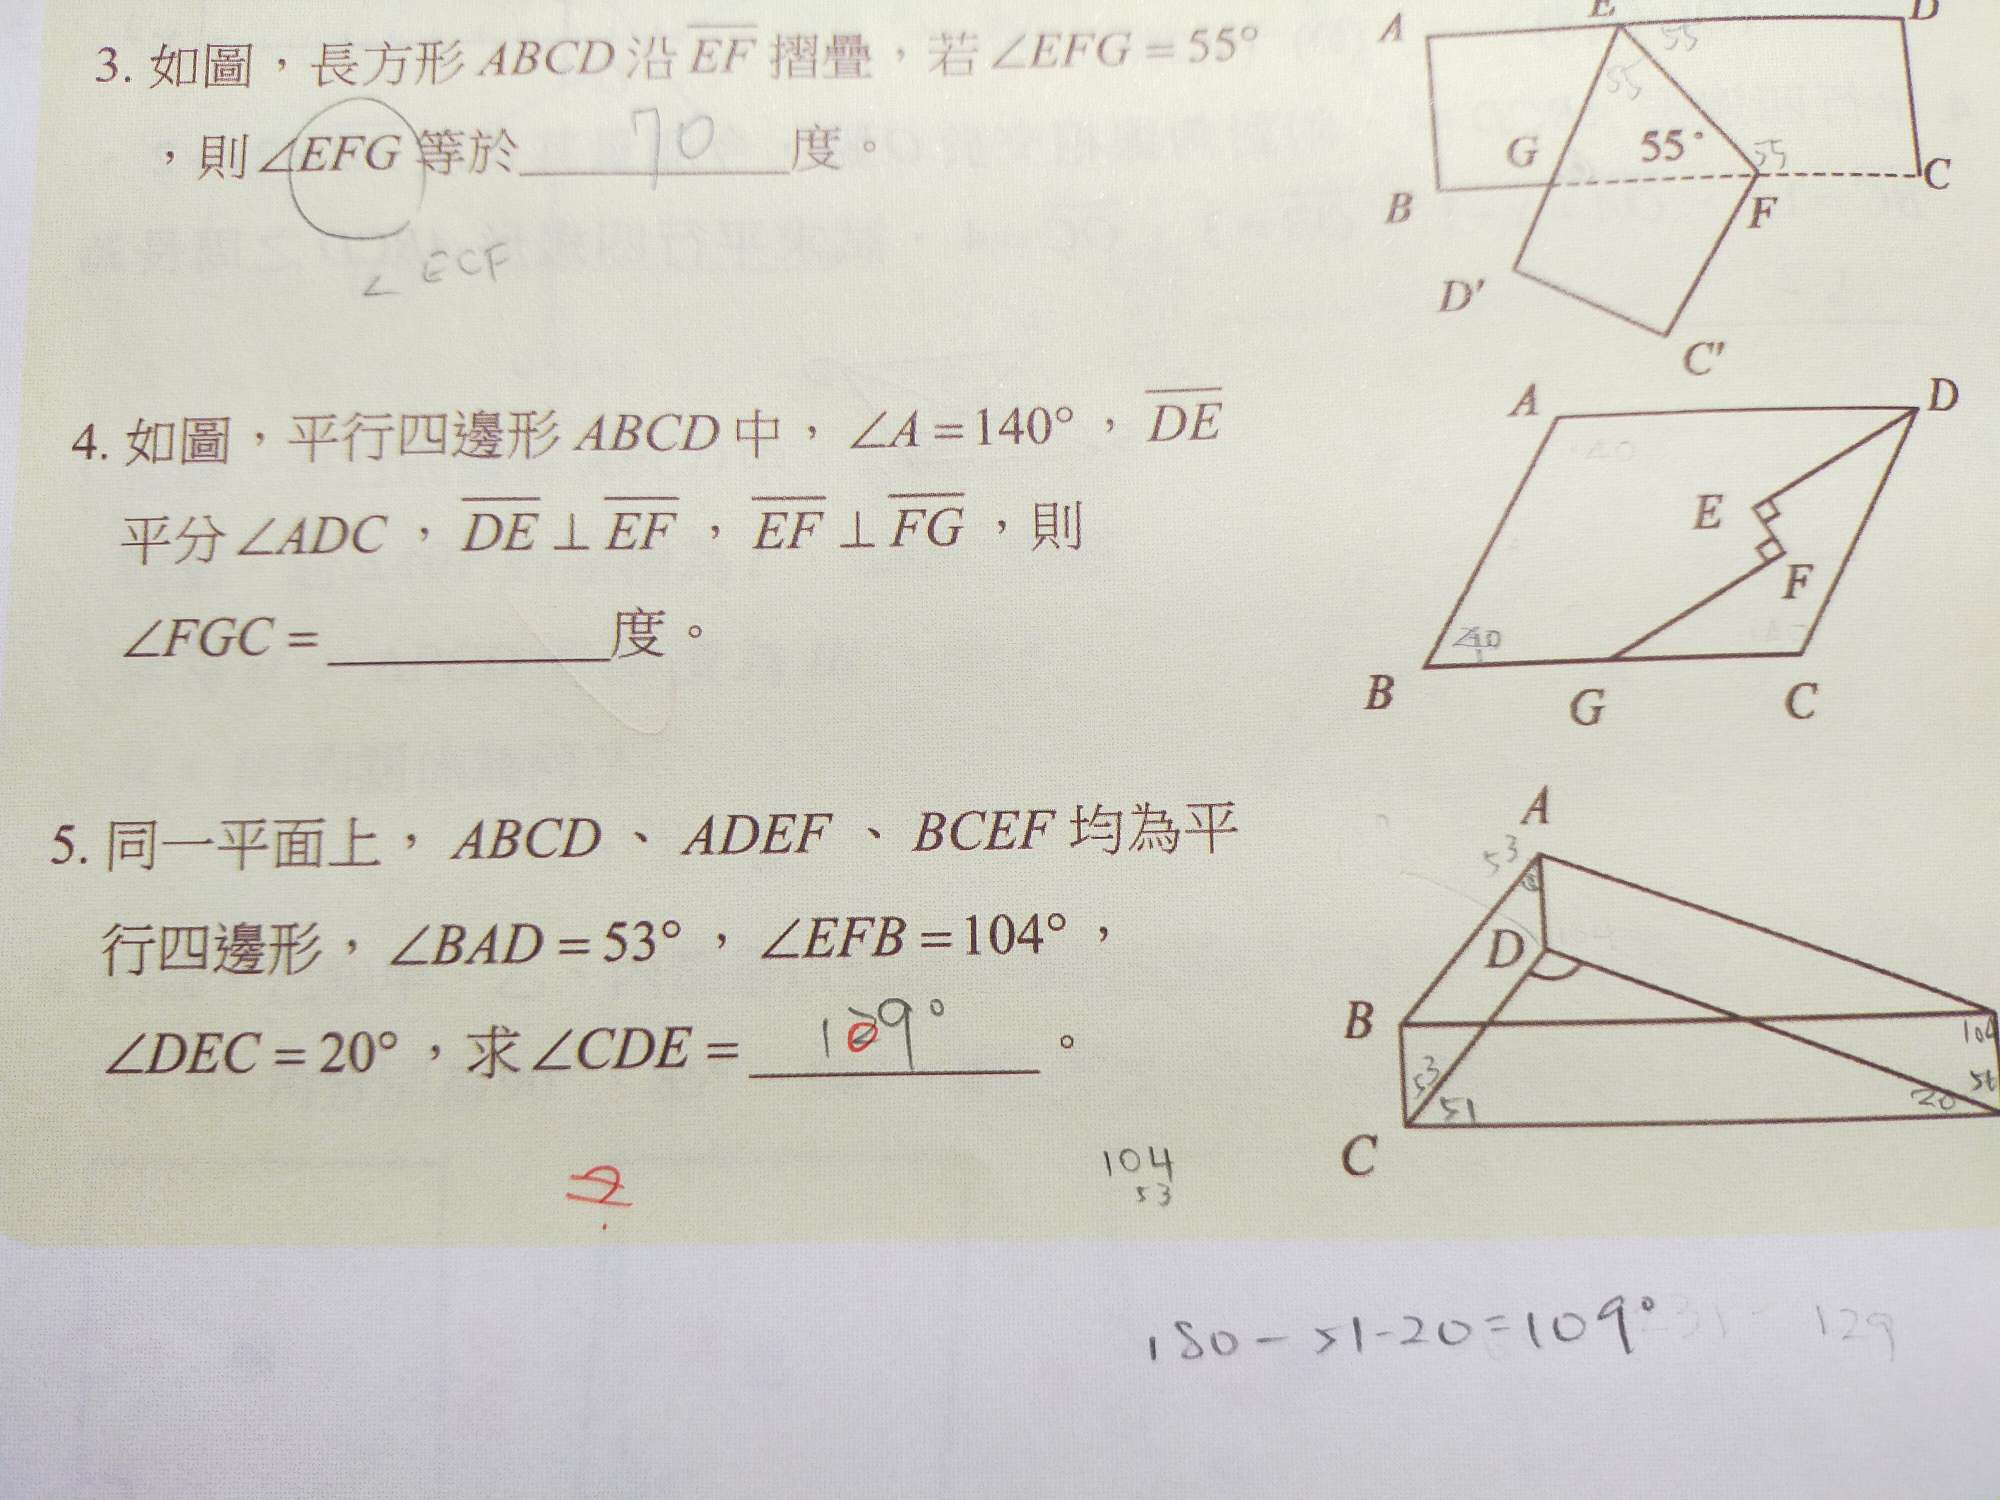 3. 如圖，長方形 ABCD 沿 EF 摺疊，若 ∠EFG = 55°
，則 ∠EFG 等於 70 度。
∠ ECF
A E D
55
55
G 55° 55
B F C
D'
C'
4. 如圖，平行四邊形 ABCD 中，∠A = 140°，DE
平分 ∠ADC，DE ⊥ EF，EF ⊥ FG，則
∠FGC = 度。
A D
E
F
40
B G C
5. 同一平面上，ABCD、ADEF、BCEF 均為平
行四邊形，∠BAD = 53°，∠EFB = 104°，
∠DEC = 20°，求 ∠CDE = 109° 。
A
53
D
B
104
53
51
20
C
104
53
180 - 51 - 20 = 109°
129